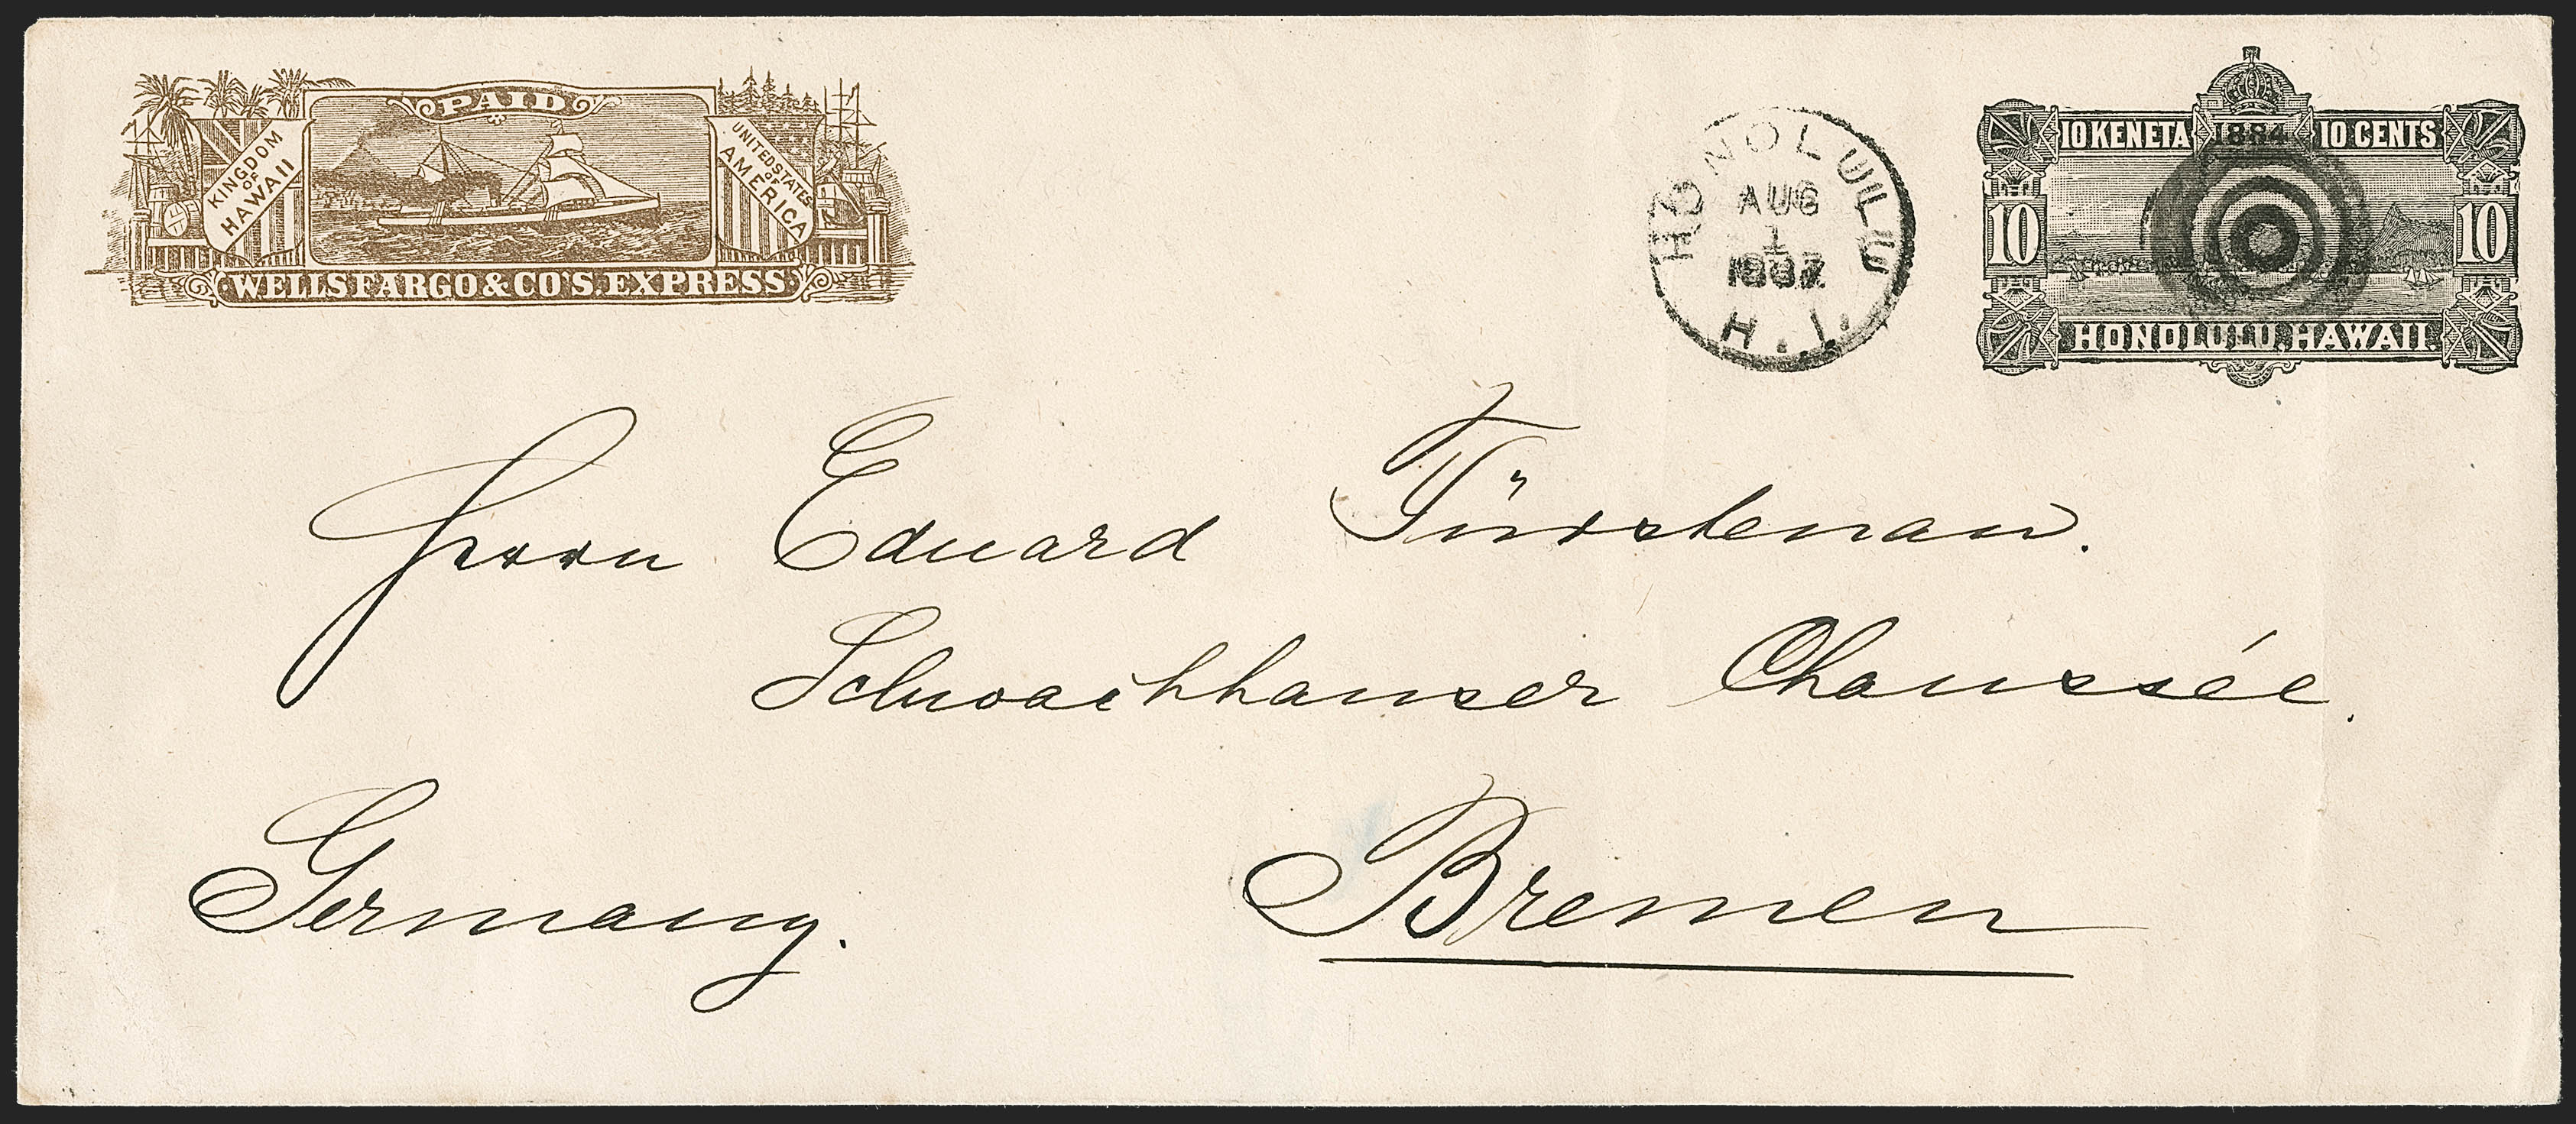 PAID
KINGDOM
OF
HAWAII
UNITED STATES
OF
AMERICA
WELLS FARGO & CO'S. EXPRESS.
HONOLULU
AUG
1
H.I.
10 KENETA 1884 10 CENTS
10 10
HONOLULU. HAWAII.
Herrn Eduard Fürstenau.
Schwachhauser Chaussée.
Germany. Bremen